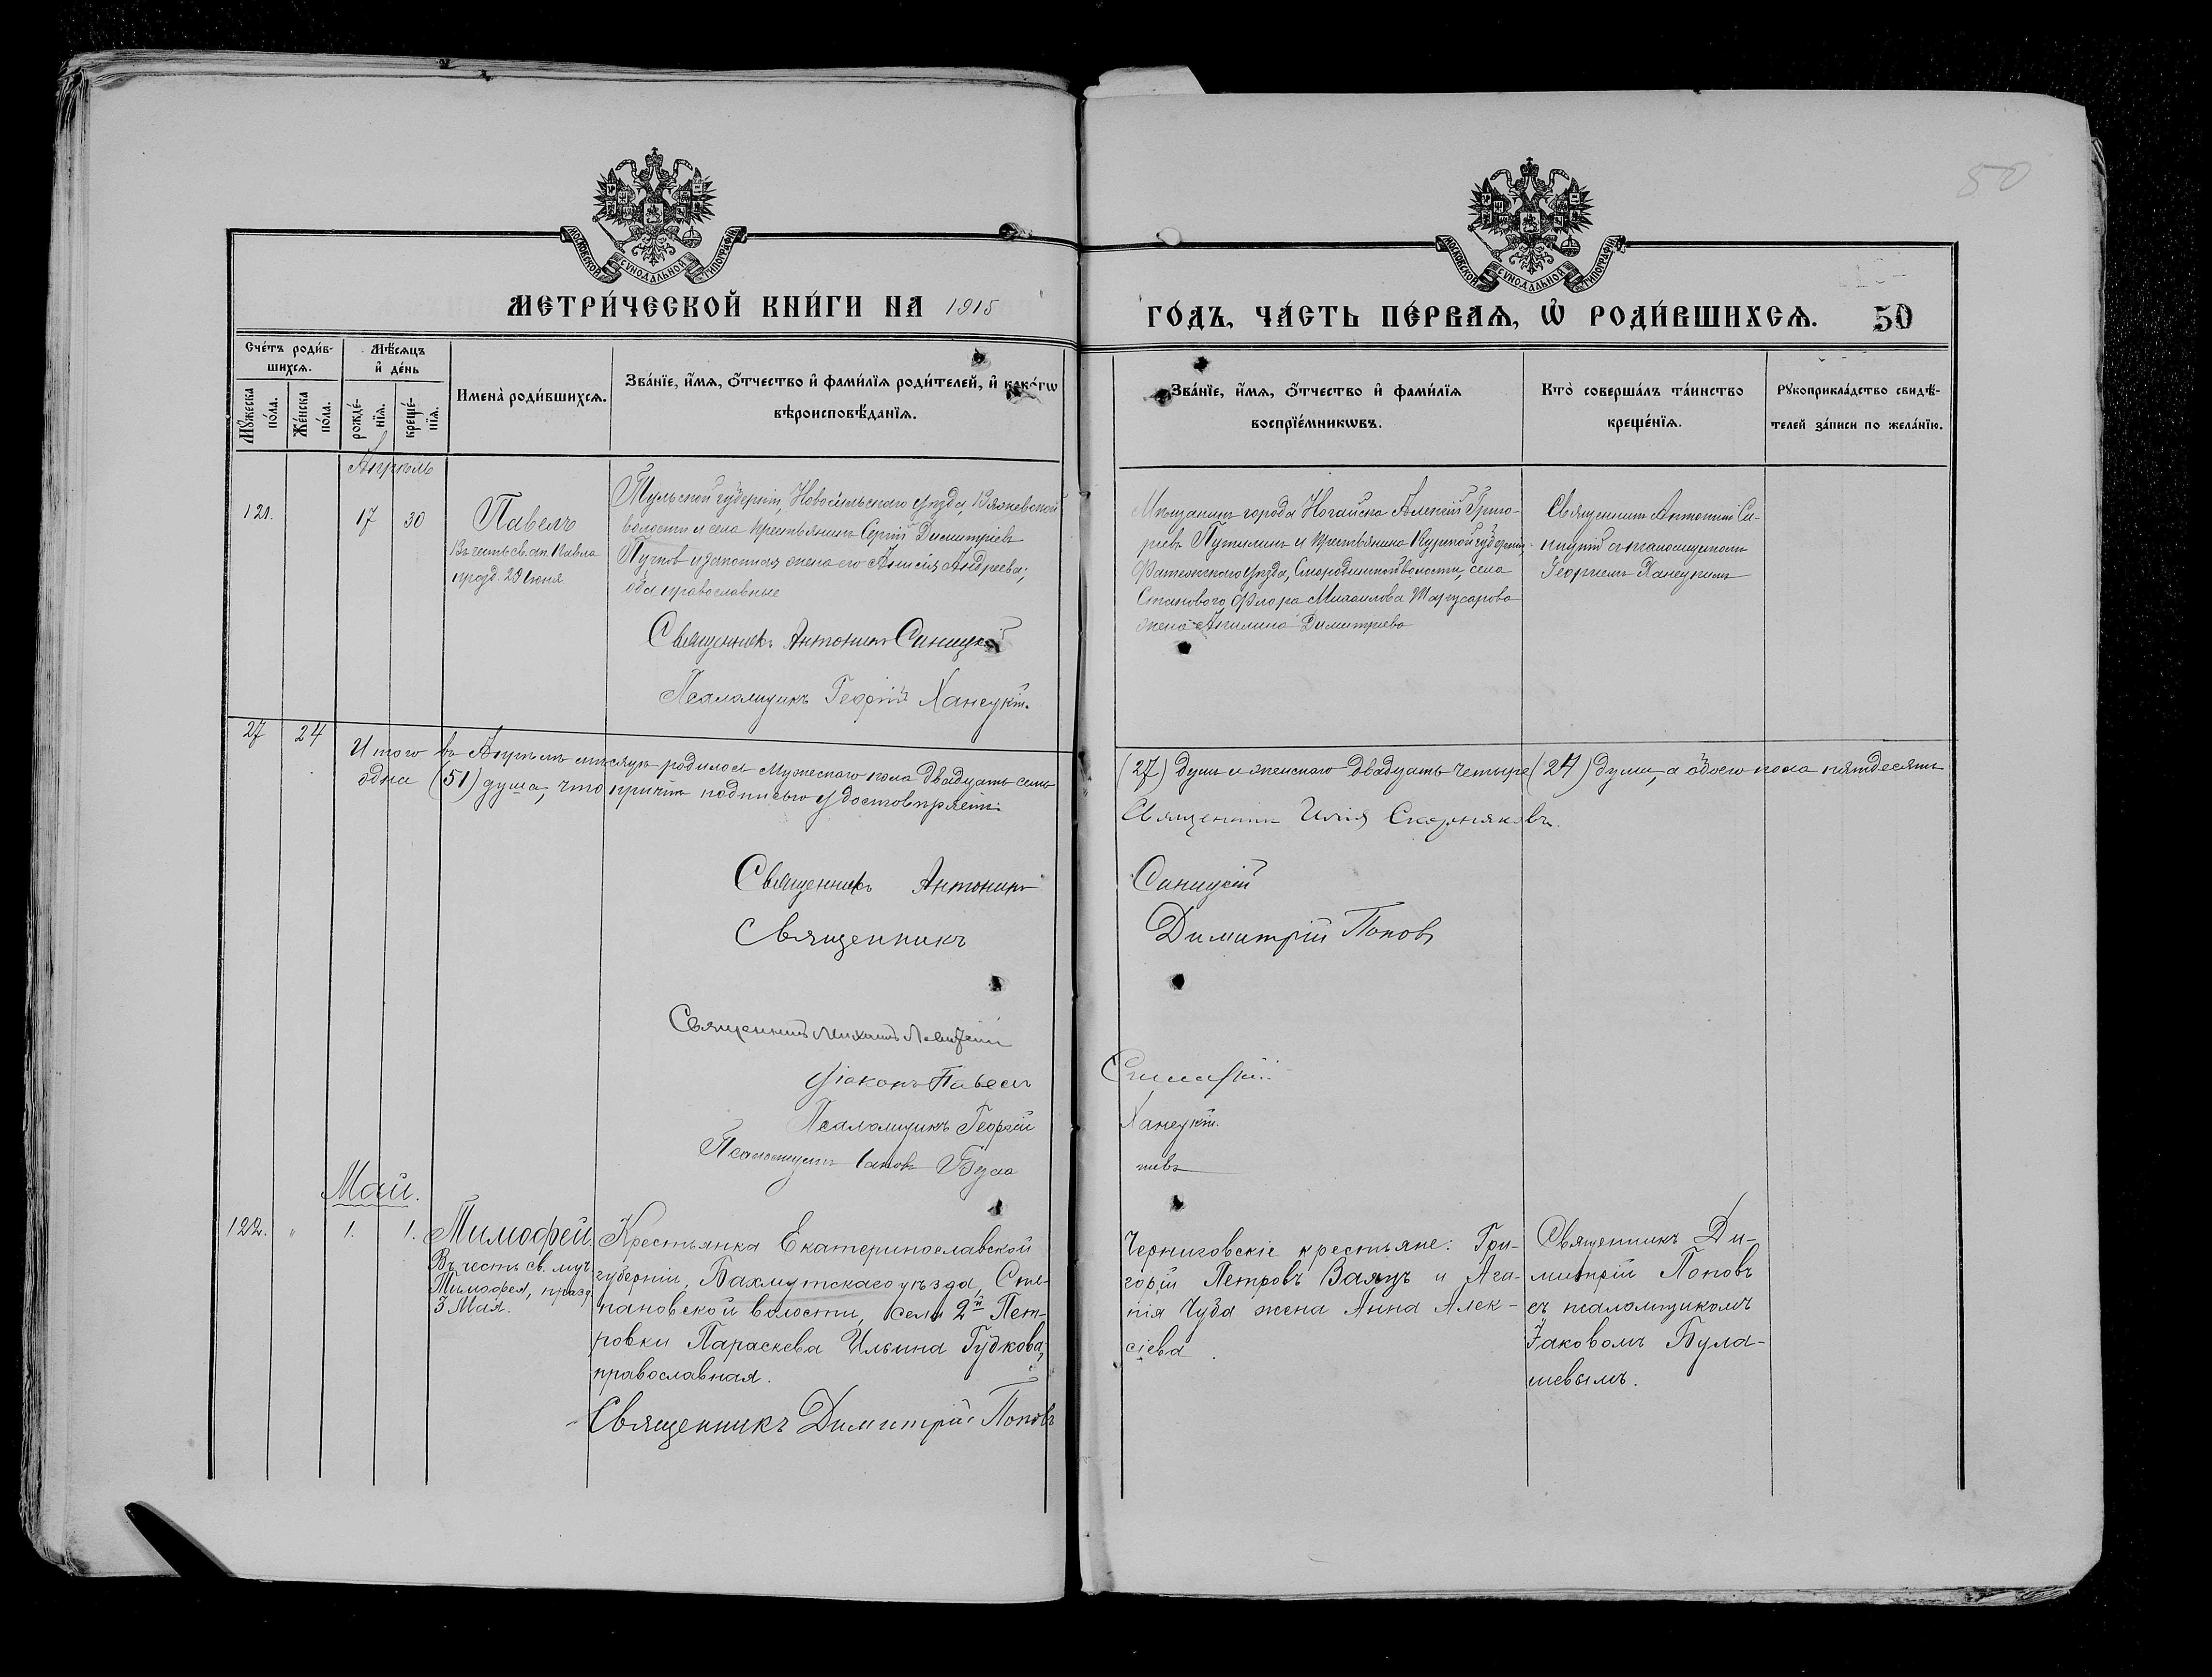 50
МОСКОВСКОЙ СУНОДАЛЬНОЙ ТИПОГРАФІИ
МОСКОВСКОЙ СУНОДАЛЬНОЙ ТИПОГРАФІИ
МЕТРИ́ЧЕСКОЙ КНИ́ГИ НА 1915
ГО́ДЪ, ЧА́СТЬ ПЕ́РВАѦ, Ѡ҆ РОДИ́ВШИХСѦ. 50
Сче́тъ роди́в-
шихсѧ.
Мѣ́сѧцъ
и҆ де́нь
Мꙋ́жеска
по́ла.
Же́нска
по́ла.
рожде́-
нїѧ.
креще́-
нїѧ.
Имена̀ роди́вшихсѧ.
Зва́нїе, и҆́мѧ, ѻ҆́тчество и҆ фами́лїѧ роди́телей, и҆ како́гѡ
вѣроисповѣ́данїѧ.
Зва́нїе, и҆́мѧ, ѻ҆́тчество и҆ фами́лїѧ
воспрїе́мникѡвъ.
Кто̀ соверша́лъ та́инство
креще́нїѧ.
Рꙋкоприкла́дство свидѣ́-
телей за́писи по жела́нїю.
Апрѣль
121. 17 30
Павелъ
Въ честь св. ап. Павла
празд. 29 Іюня
Тульской губерніи, Новосильскаго уѣзда, Вяжевской
волости и села крестьянинъ Сергій Димитріевъ
и законная жена его Анисія Андреева,
оба православные
Священникъ Антонинъ Синицкій
Псаломщикъ Георгій Ханецкій.
Мѣщанинъ города Ногайска Алексій Григо-
рьевъ Путилинъ и крестьянина Курской губерніи
Фатежскаго уѣзда, Смородинской волости, села
Станового Флора Михаилова
жена Акилина Димитріева
Священникъ Антонинъ Си-
ницкій съ псаломщикомъ
Георгіемъ Ханецкимъ
27 24
Итого въ Апрѣлѣ мѣсяцѣ родилось мужескаго пола двадцать семь
(27) душъ и женскаго двадцать четыре (24) души, а обоего пола пятдесятъ
одна (51) душа, что причтъ подписью удостовѣряетъ.
Священникъ Илія Скорняковъ.
Священникъ Антонинъ Синицкій
Священникъ Димитрій Поповъ
Священникъ Михаилъ
Діаконъ Павелъ
Псаломщикъ Георгій Ханецкій.
Псаломщикъ Іаковъ Була шевъ
Май.
122. " 1. 1.
Тимофей.
Въ честь св. муч.
Тимофея, празд.
3 Мая.
Крестьянка Екатеринославской
губерніи, Бахмутскаго уѣзда, Сте-
пановской волости, села 2й Пет-
ровки Параскева Ильина Гудкова,
православная.
Священникъ Димитрій Поповъ
Черниговскіе крестьяне: Гри-
горій Петровъ Ваяцъ и Ага-
пія Чуба жена Анна Алек-
сіева.
Священникъ Ди-
митрій Поповъ
съ псаломщикомъ
Іаковомъ Була-
шевымъ.